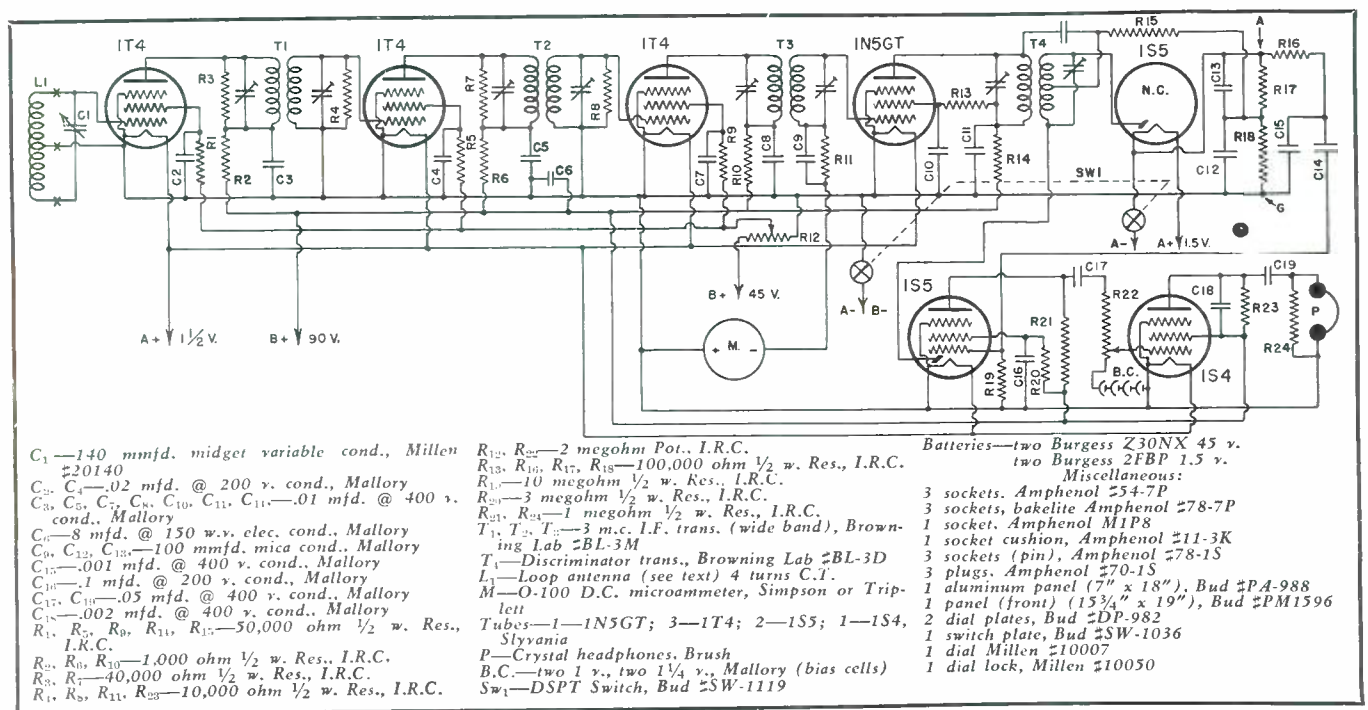 1T4
1T4
1T4
1N5GT
1S5
L1
C1
C2
R1
R3
R2
C3
T1
R4
C4
R5
R7
R6
T2
C5
C6
R8
C7
R9
R10
T3
C8
C9
R11
C10
R13
C11
R14
T4
R15
N.C.
C13
C12
A
R16
R17
R18
C15
C14
G
SW1
R12
A+ 1½ V.
B+ 90 V.
B+ 45 V.
A- B-
A-
A+ 1.5 V.
+ M. -
1S5
R19
C16
R20
R21
C17
R22
B.C.
1S4
C18
R23
C19
R24
P
C₁—140 mmfd. midget variable cond., Millen
#20140
C₂, C₄—.02 mfd. @ 200 v. cond., Mallory
C₃, C₅, C₇, C₈, C₁₀, C₁₁, C₁₄—.01 mfd. @ 400 v.
cond., Mallory
C₆—8 mfd. @ 150 w.v. elec. cond., Mallory
C₉, C₁₂, C₁₃—100 mmfd. mica cond., Mallory
C₁₅—.001 mfd. @ 400 v. cond., Mallory
C₁₆—.1 mfd. @ 200 v. cond., Mallory
C₁₇, C₁₉—.05 mfd. @ 400 v. cond., Mallory
C₁₈—.002 mfd. @ 400 v. cond., Mallory
R₁, R₅, R₉, R₁₄, R₁₅—50,000 ohm ½ w. Res.,
I.R.C.
R₂, R₆, R₁₀—1,000 ohm ½ w. Res., I.R.C.
R₃, R₇—40,000 ohm ½ w. Res., I.R.C.
R₄, R₈, R₁₁, R₂₃—10,000 ohm ½ w. Res., I.R.C.
R₁₂, R₂₂—2 megohm Pot., I.R.C.
R₁₃, R₁₆, R₁₇, R₁₈—100,000 ohm ½ w. Res., I.R.C.
R₁₉—10 megohm ½ w. Res., I.R.C.
R₂₀—3 megohm ½ w. Res., I.R.C.
R₂₁, R₂₄—1 megohm ½ w. Res., I.R.C.
T₁, T₂, T₃—3 m.c. I.F. trans. (wide band), Brown-
ing Lab #BL-3M
T₄—Discriminator trans., Browning Lab #BL-3D
L₁—Loop antenna (see text) 4 turns C.T.
M—O-100 D.C. microammeter, Simpson or Trip-
lett
Tubes—1—1N5GT; 3—1T4; 2—1S5; 1—1S4,
Slyvania
P—Crystal headphones. Brush
B.C.—two 1 v., two 1¼ v., Mallory (bias cells)
Sw₁—DSPT Switch, Bud #SW-1119
Batteries—two Burgess Z30NX 45 v.
two Burgess 2FBP 1.5 v.
Miscellaneous:
3 sockets. Amphenol #54-7P
3 sockets, bakelite Amphenol #78-7P
1 socket. Amphenol M1P8
1 socket cushion, Amphenol #11-3K
3 sockets (pin), Amphenol #78-1S
3 plugs. Amphenol #70-1S
1 aluminum panel (7" x 18"), Bud #PA-988
1 panel (front) (15¾" x 19"), Bud #PM1596
2 dial plates, Bud #DP-982
1 switch plate, Bud #SW-1036
1 dial Millen #10007
1 dial lock, Millen #10050